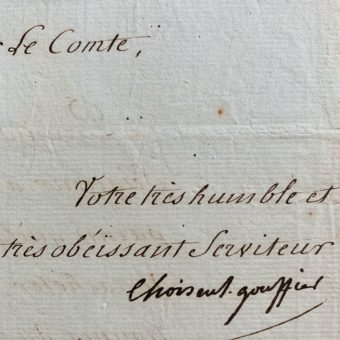 Le Comte,
Votre très humble et
très obéissant Serviteur
Choiseul-gouffier